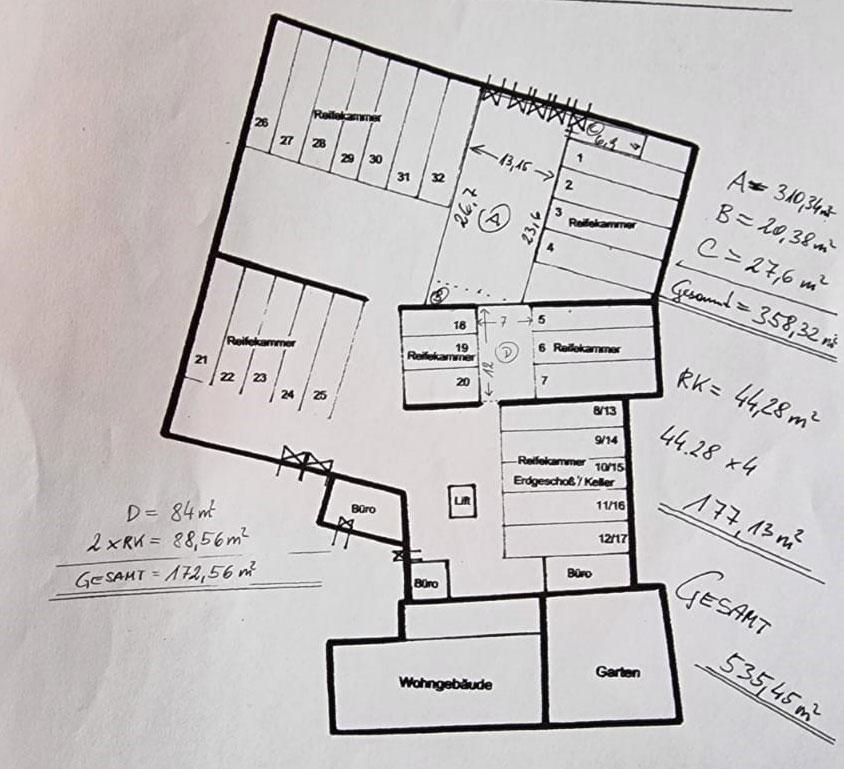 26
27
28
29
30
31
32
Reifekammer
13,15
26,7
A
23,6
C
6,9
1
2
3
4
Reifekammer
A = 310,34 m²
B = 20,38 m²
C = 27,6 m²
Gesamt = 358,32 m²
B
21
22
23
24
25
Reifekammer
18
19
Reifekammer
20
7
12
D
5
6 Reifekammer
7
RK = 44,28 m²
44.28 x 4
177,13 m²
8/13
9/14
Reifekammer 10/15
Erdgeschoß / Keller
11/16
12/17
Lift
Büro
Büro
Büro
D = 84 m²
2 x RK = 88,56 m²
GESAMT = 172,56 m²
GESAMT
535,45 m²
Wohngebäude
Garten